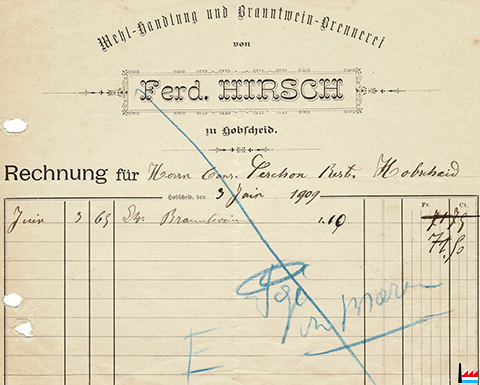 Mehl-Handlung und Branntwein-Brennerei
von
Ferd. HIRSCH
zu Hobscheid.
Rechnung für Herrn Lerchon Hobscheid
Hobscheid, den 3 Juin 1909
Fr. Ct.
Juin 3 65 Branntwein 1.19 71 75
71.50
E